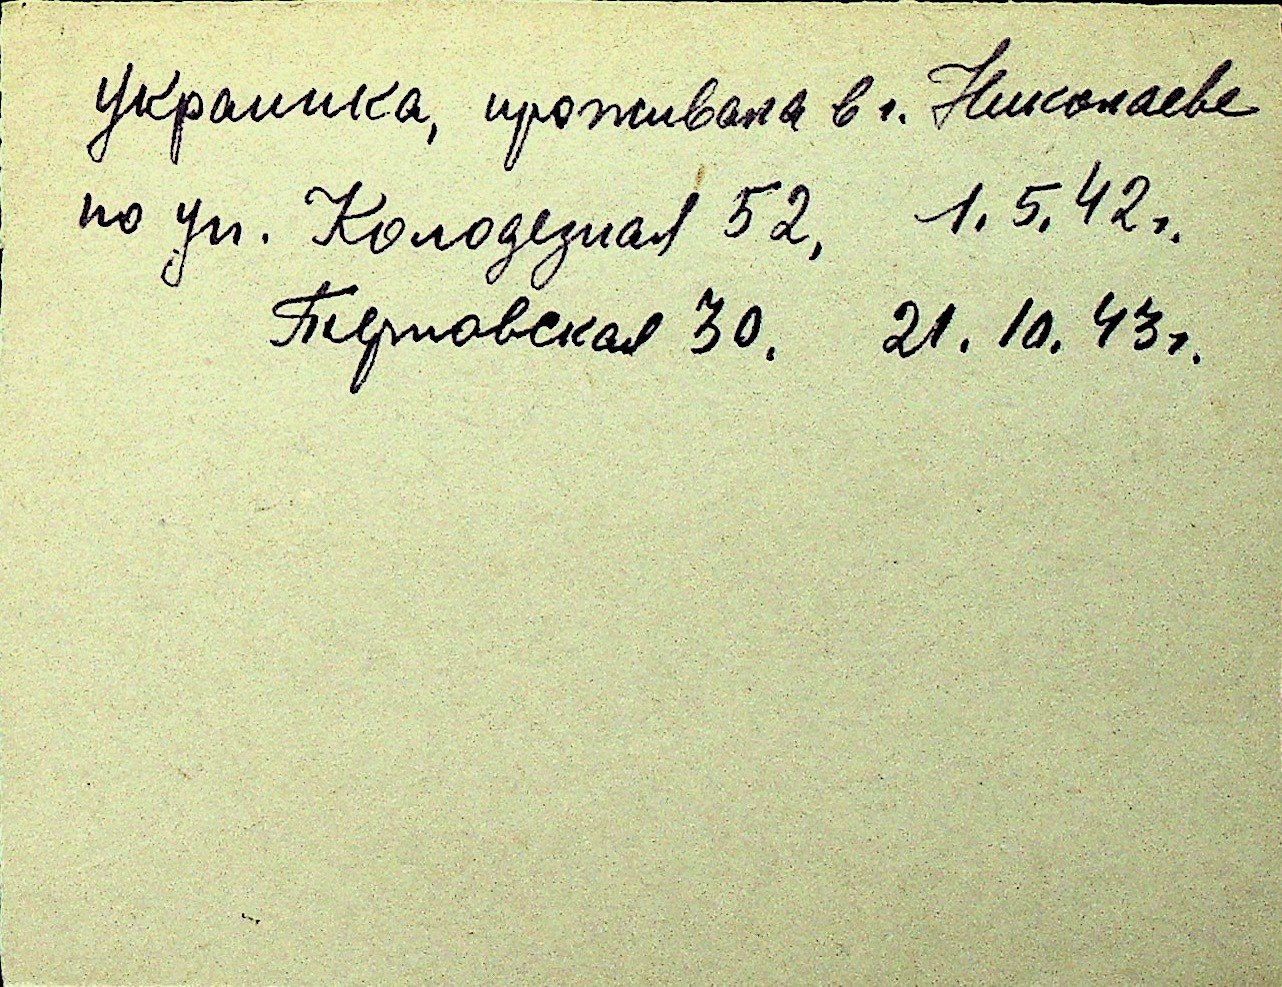 украинка, проживала в г. Николаеве
по ул. Колодезная 52, 1.5.42 г.
Терновская 30. 21.10.43 г.